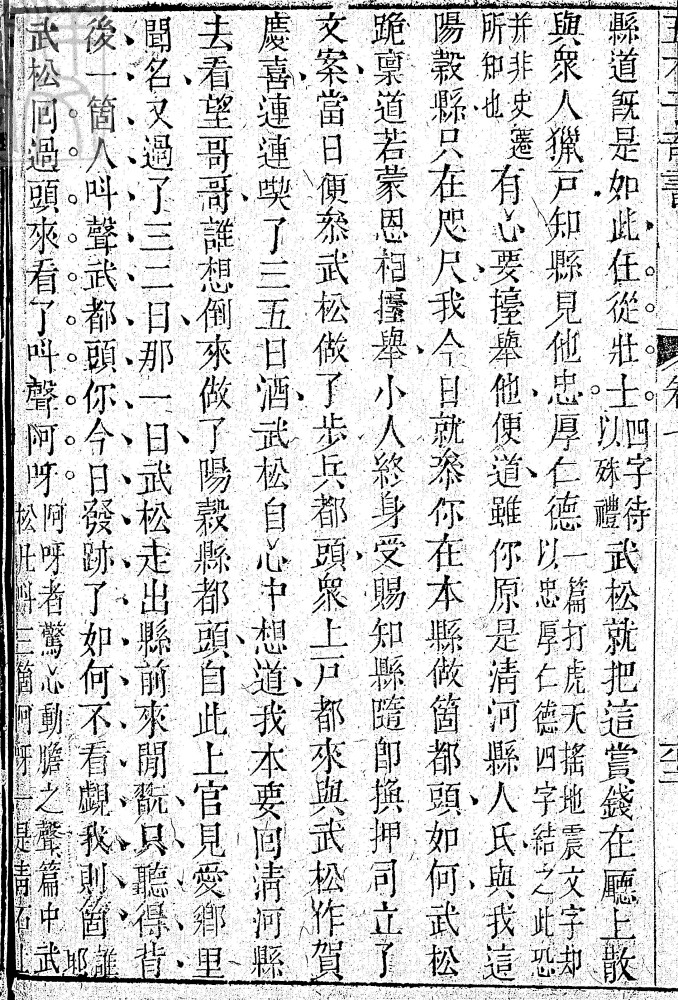 縣道旣是如此任從壯士四字待以殊禮武松就把這賞錢在廳上散
與衆人獵戸知縣見他忠厚仁德一篇打虎天搖地震文字却以忠厚仁德四字結之此恐
并非史遷所知也有心要擡舉他便道雖你原是淸河縣人氏與我這
陽穀縣只在咫尺我今日就叅你在本縣做箇都頭如何武松
跪禀道若蒙恩相擡舉小人終身受賜知縣隨卽換押司立了
文案當日便叅武松做了步兵都頭衆上戸都來與武松作賀
慶喜連連喫了三五日酒武松自心中想道我本要囘淸河縣
去看望哥哥誰想倒來做了陽穀縣都頭自此上官見愛鄉里
聞名又過了三二日那一日武松走出縣前來閒翫只聽得背
後一箇人叫聲武都頭你今日發跡了如何不看覷我則箇誰耶
武松囘過頭來看了叫聲阿呀阿呀者驚心動膽之聲篇中武松叫三箇阿呀一是靑石上